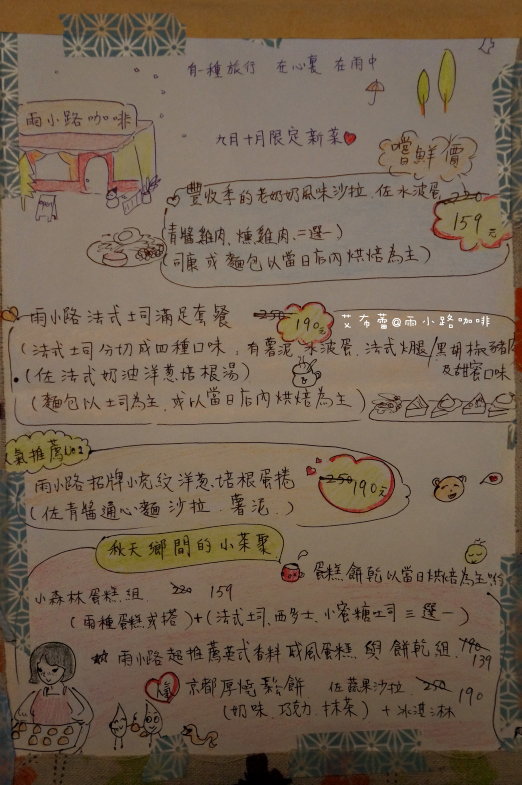 有一種旅行 在心裏 在雨中
雨小路咖啡
九月十月限定新菜
嚐鮮價
豐收季的老奶奶風味沙拉.佐水波蛋 220
159元
青醬雞肉、燻雞肉、二選一)
司康或麵包以當日店內烘焙為主)
雨小路法式土司滿足套餐 250 190元
艾布蕾@雨小路咖啡
(法式土司分切成四種口味;有薯泥、水波蛋、法式火腿/黑胡椒豬肉
及甜蜜口味
(佐法式奶油洋蔥培根湯)
(麵包以土司為主,或以當日店內烘焙為主)
氣推薦No.2
雨小路招牌小荒紋洋蔥、培根蛋捲 250 190元
(佐青醬通心麵沙拉.薯泥.)
秋天鄉間的小茶聚
蛋糕.餅乾以當日烘焙為主
小森林蛋糕組 220 159
(兩種蛋糕或塔)+(法式土司、西多士、小蜜糖土司三選一)
雨小路超推薦英式香料戚風蛋糕與餅乾組 190
139
京都厚燒鬆餅 佐蔬果沙拉. 250 190
(奶味.巧克力.抹茶) +冰淇淋